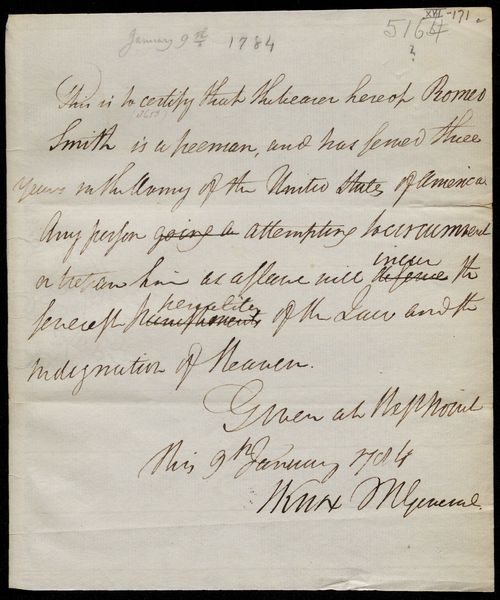 XVI-171
5164
?
January 9th 1784
This is to certify that the bearer hereof Romeo
Smith is a freeman, and has served three
years in the Army of the United States of America
Any person going a attempting to circumvent
or treat him as a slave will deserve incur the
severest punishments penalties of the Law and the
indignation of Heaven.
Given at West Point
this 9th January 1784
HKnox MGeneral.